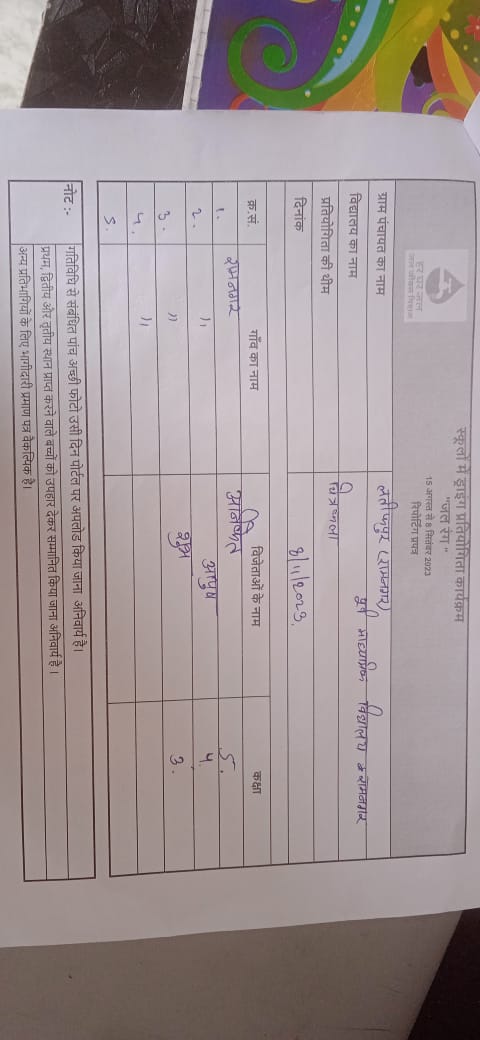 हर घर जल
जल जीवन मिशन
स्कूलों में ड्राइंग प्रतियोगिता कार्यक्रम
"जल रंग"
15 अगस्त से 8 सितंबर 2023
रिपोर्टिंग प्रपत्र
ग्राम पंचायत का नाम लतीफपुर (रामनगर)
विद्यालय का नाम पूर्व माध्यमिक विद्यालय रामनगर
प्रतियोगिता की थीम चित्रकला
दिनांक 8/11/2023.
क्र.सं. गाँव का नाम विजेताओं के नाम कक्षा
1. रामनगर 5.
2. ,, आयुष 4.
3. ,, शुभ 3.
4. ,,
5.
नोट :- गतिविधि से संबंधित पांच अच्छी फोटो उसी दिन पोर्टल पर अपलोड किया जाना अनिवार्य है।
प्रथम, द्वितीय और तृतीय स्थान प्राप्त करने वाले बच्चों को उपहार देकर सम्मानित किया जाना अनिवार्य है।
अन्य प्रतिभागियों के लिए भागीदारी प्रमाण पत्र वैकल्पिक है।